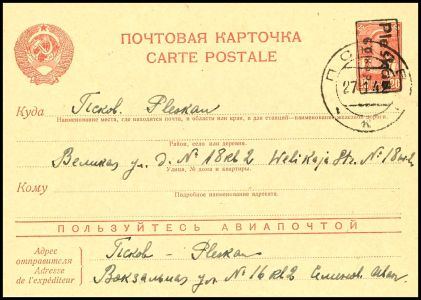 ПОЧТОВАЯ КАРТОЧКА
CARTE POSTALE
Pleskau
60 коп
20
ПСКОВ
27.1.4
Куда Псков. Pleskau
Наименование места, где находится почта, и области или края, а для станций—наименование железной дороги
Район, село или деревня.
Великая ул. д. № 18 кв 2 Welikaja Str. № 18 wh 2
Улица, № дома и квартиры.
Кому
Подробное наименование адресата.
ПОЛЬЗУЙТЕСЬ АВИАПОЧТОЙ
Адрес
отправителя
Adresse
de l'expéditeur
Псков - Pleskau
Вокзальная ул № 16 кв 2 Семенов Иван